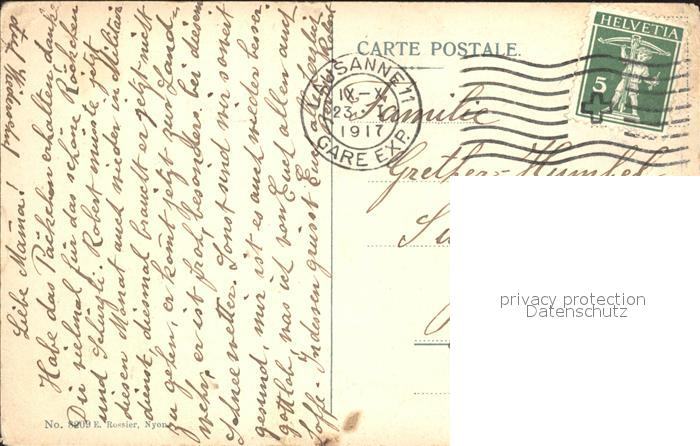 Liebe Mama!
Habe das Päckchen erhalten danke
Dir vielmal für das schöne Röckchen
und Schürzli. Robert musste jetzt
diesen Monat auch wieder in Militär
dienst, diesmal braucht er jetzt nicht
zu gehen, er kommt jetzt zur Land-
wehr, er ist froh, besonders bei diesem
Schneewetter. Sonst sind wir soweit
gesund, mir ist es auch wieder besser
gottlob, was ich von Euch allen auch
hoffe. Indessen grüsst Euch alle herzlich
CARTE POSTALE.
Familie
HELVETIA
5
LAUSANNE 11
IX-X
23
1917
GARE EXP.
privacy protection
Datenschutz
No. 8209 E. Rossier, Nyon